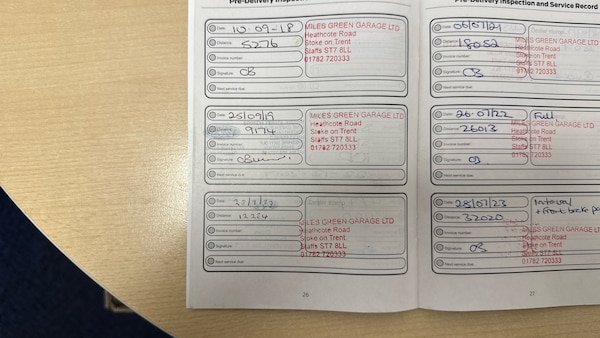 Pre-Delivery Inspection
Date: 10-09-18
Distance: 5276
Invoice number:
Signature: OB
Next service due:
MILES GREEN GARAGE LTD
Heathcote Road
Stoke on Trent
Staffs ST7 8LL
01782 720333
Date: 25/09/19
9174
Invoice number:
Signature:
Next service due:
MILES GREEN GARAGE LTD
Heathcote Road
Stoke on Trent
Staffs ST7 8LL
01782 720333
Date:
Distance:
Invoice number:
Signature:
Next service due:
MILES GREEN GARAGE LTD
Heathcote Road
Stoke on Trent
Staffs ST7 8LL
01782 720333
26
Pre-Delivery Inspection and Service Record
Date: 06/07/21
Distance: 18052
Invoice number:
Signature: OB
Next service due:
MILES GREEN GARAGE
Heathcote Road
Stoke on Trent
Staffs ST7 8LL
01782 720333
Date: 26-07/22
Distance: 26013
Invoice number:
Signature: OB
Next service due:
Full
MILES GREEN GARAGE
Heathcote Road
Stoke on Trent
Staffs ST7 8LL
01782 720333
Date: 28/07/23
Distance: 32020
Invoice number:
Signature: OB
Next service due:
Interval
+ Front brake
MILES GREEN GARAGE
Heathcote Road
Stoke on Trent
Staffs ST7 8LL
01782 720333
27